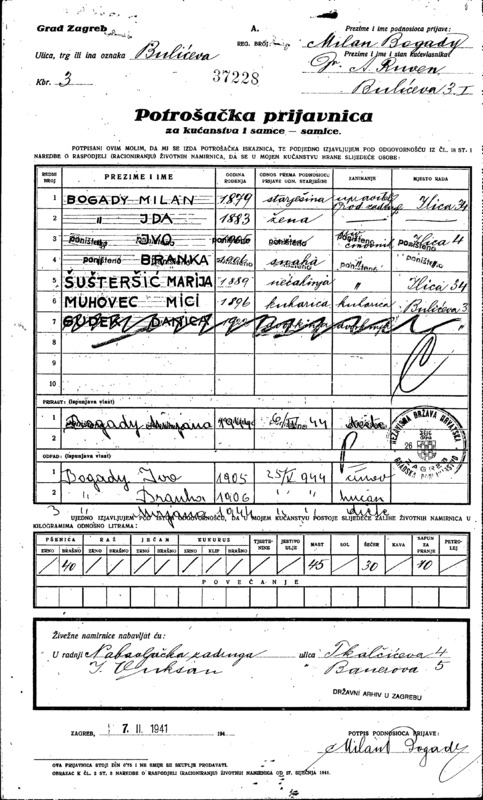 Grad Zagreb
A.
REG. BROJ:
Prezime i ime podnosioca prijave:
Milan Bogady
Ulica, trg ili ina oznaka Bulićeva
Prezime i ime i stan kućevlasnika:
Dr. A. Ruven
Kbr. 3
37228
Bulićeva 3. I
Potrošačka prijavnica
za kućanstva i samce — samice.
POTPISANI OVIM MOLIM, DA MI SE IZDA POTROŠAČKA ISKAZNICA, TE PODJEDNO IZJAVLJUJEM POD ODGOVORNOŠĆU IZ ČL. 18 ST. 1
NAREDBE O RASPODJELI (RACIONIRANJU) ŽIVOTNIH NAMIRNICA, DA SE U MOJEM KUĆANSTVU HRANE SLIJEDEĆE OSOBE:
REDNI BROJ PREZIME I IME GODINA ROĐENJA ODNOS PREMA PODNOSIOCU PRIJAVE ODN. STARJEŠINI ZANIMANJE MJESTO RADA
1 BOGADY MILAN 1879 starješina Ilica 34
2 " IDA 1883 žena
3 poništeno IVO poništeno poništeno Ilica 4
4 poništeno BRANKA 1906 snaha poništeno poništeno
5 ŠUŠTERŠIĆ MARIJA 1889 " Ilica 34
6 MUHOVEC MICI 1896 kuharica kuharica Bulićeva 3
7 DANICA "
8
9
10
PRIRAST: (Ispunjava vlast)
1 Bogady 1944 44
2
NEZAVISNA DRŽAVA HRVATSKA
26
ZAGREB
ODPAD: (Ispunjava vlast)
1 Bogady Ivo 1905 25/V 944
2 " Branka 1906 " "
3 " 1944 " "
UJEDNO IZJAVLJUJEM POD ISTOM ODGOVORNOŠĆU, DA U MOJEM KUĆANSTVU POSTOJE SLIJEDEĆE ZALIHE ŽIVOTNIH NAMIRNICA U
KILOGRAMIMA ODNOSNO LITRAMA:
PŠENICA RAŽ JEČAM KUKURUZ TJESTENINE JESTIVO ULJE MAST SOL ŠEĆER KAVA SAPUN ZA PRANJE PETROLEJ
ZRNO BRAŠNO ZRNO BRAŠNO ZRNO BRAŠNO ZRNO KLIP BRAŠNO
/ 40 / / / / / / / / / 45 / 30 / 10 /
POVEĆANJE
Živežne namirnice nabavljat ću:
U radnji Nabavljačka zadruga ulica Tkalčićeva 4
I. Vuksan " Bauerova 5
DRŽAVNI ARHIV U ZAGREBU
ZAGREB, 7. II. 1941 194
POTPIS PODNOSIOCA PRIJAVE:
Milan Bogady
OVA PRIJAVNICA STOJI DIN 0'75 I NE SMIJE SE SKUPLJE PRODAVATI.
OBRAZAC K ČL. 2 ST. 2 NAREDBE O RASPODJELI (RACIONIRANJU) ŽIVOTNIH NAMIRNICA OD 27. SIJEČNJA 1941.